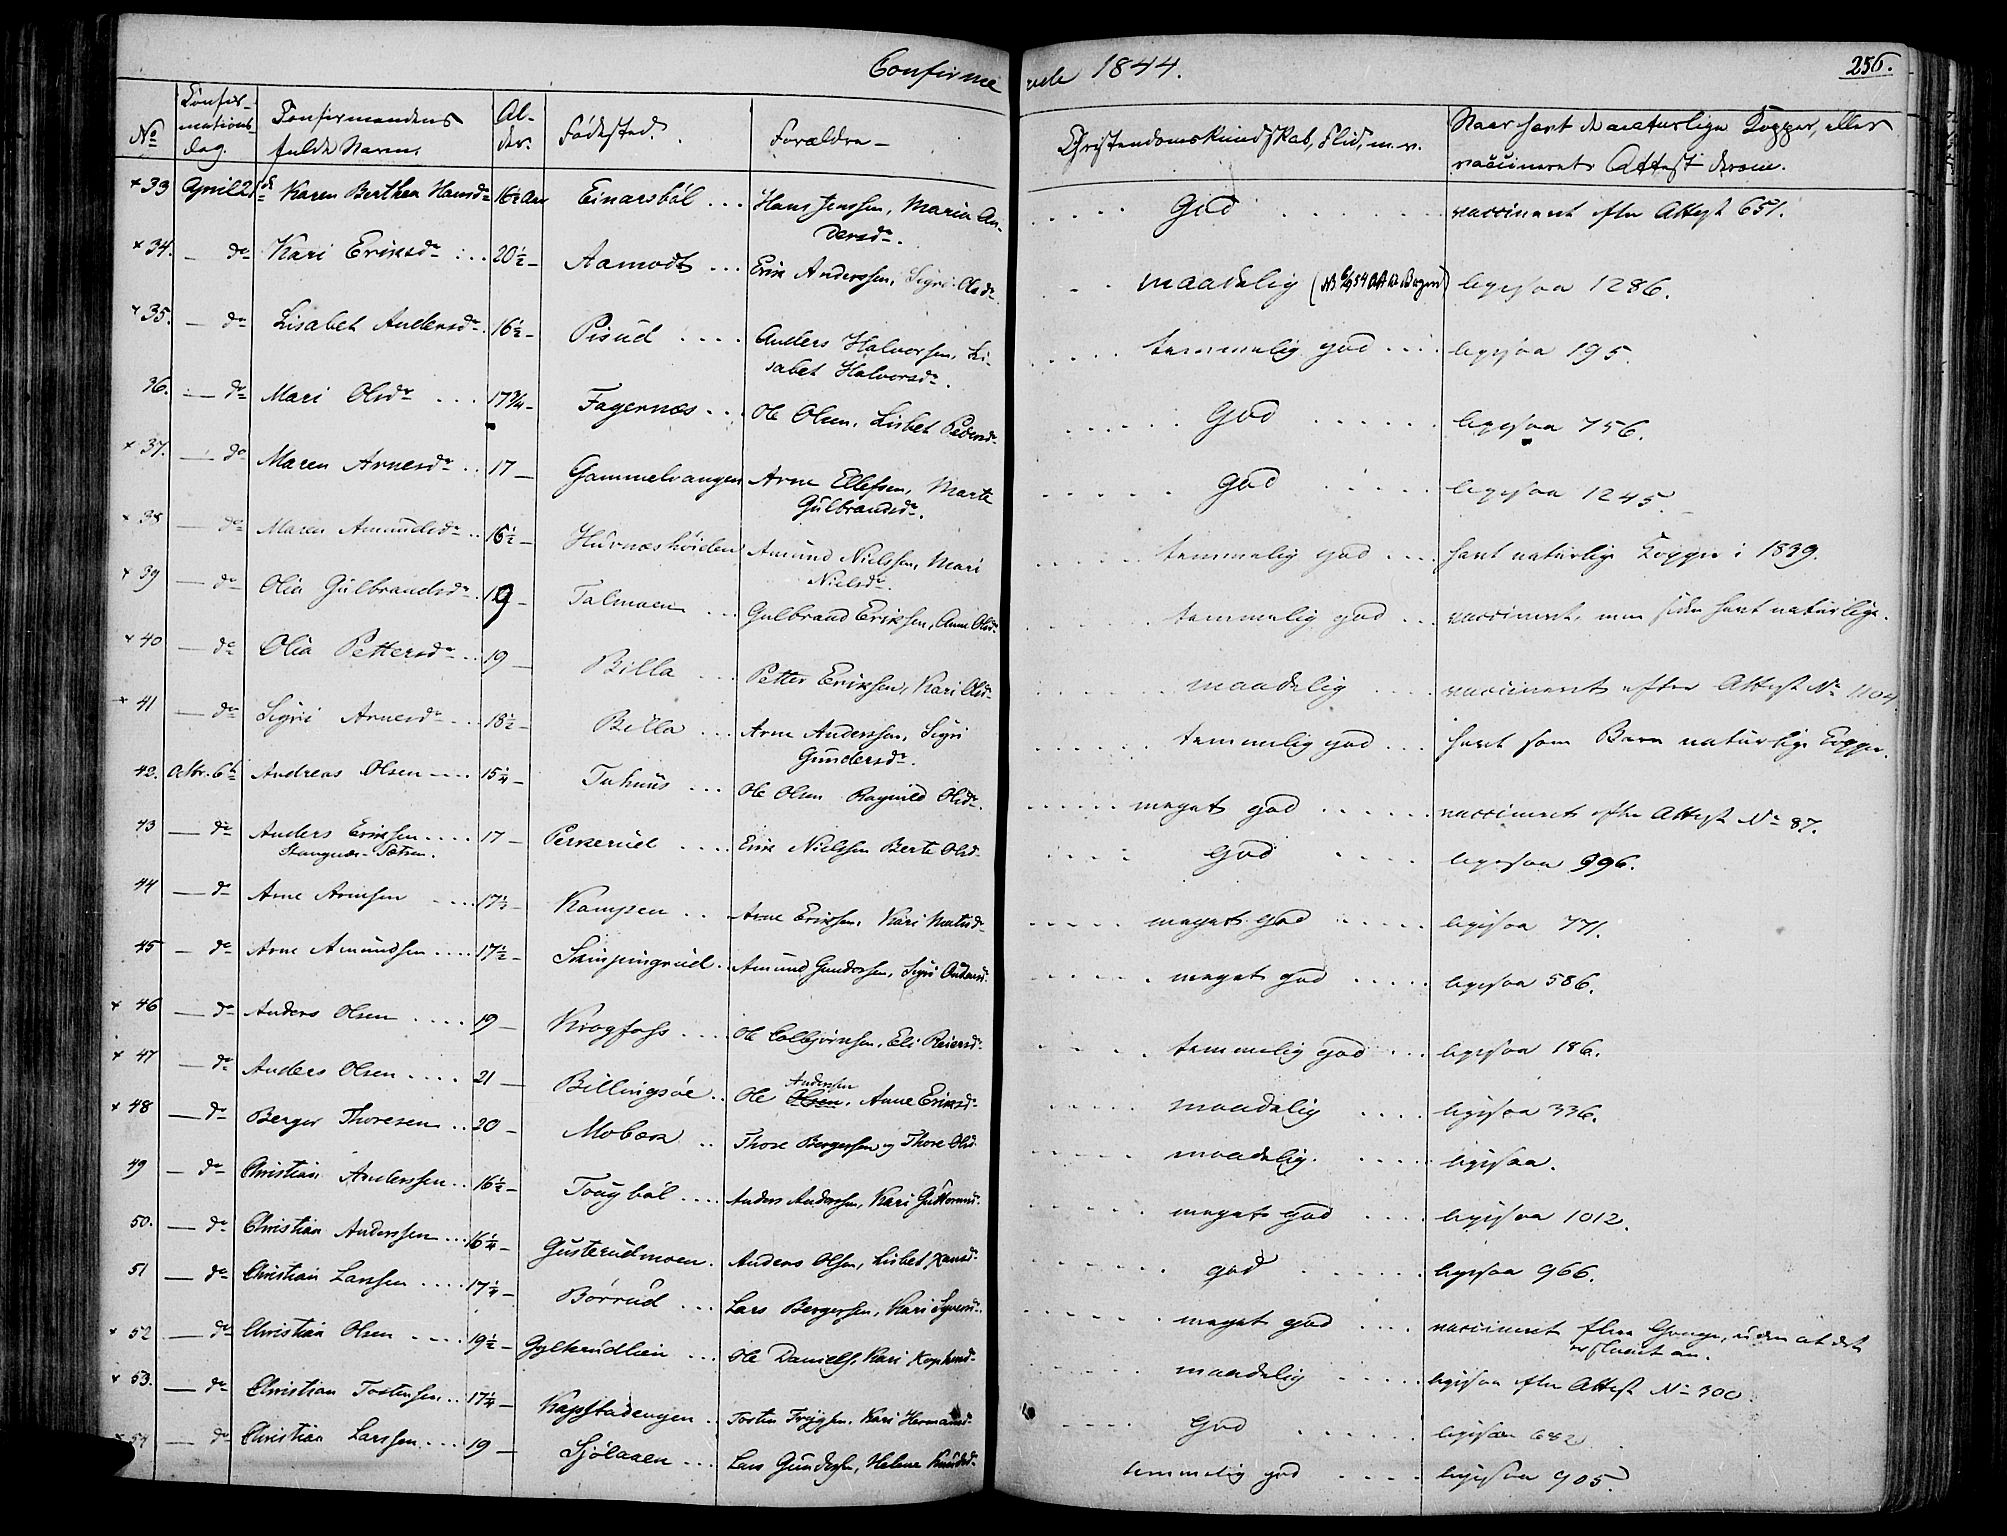 Confirmerede 1844.
256.
No
Confirmations dag.
Confirmandens fulde Navn.
Alder.
Fødested.
Forældre
Christendomskundskab, Flid, m. v.
Naar havt de naturlige Kopper, eller vaccineret Attest derom.
+ 33 April 21de Karen Berthea Hansdr 16½ Aar Einarsböl ... Hans Jenssen, Maria Andersdr. God vaccineret efter Attest 651.
+ 34. — do Kari Eriksdr 20½ — Aamodt ... Erik Anderssen, Sigri Olsdr. maadelig ligesaa 1286.
+ 35. — do Lisabet Andersdr 16½ — Pisud .... Anders Halvorsen, Lisabet Halvorsdr. temmelig god ligesaa 195.
36. — do Mari Olsdr ... 17¾ — Fagernæs ... Ole Olsen, Lisbet Pedersdr God ligesaa 756.
+ 37. — do Maren Arnesdr .. 17 — Gammelvangen Arne Ellefsen, Marte Gulbrandsdr. god ligesaa 1245.
+ 38 — do Maren Amundsdr .. 16½ — Hurnæshöiden Amund Nielssen, Mari Nielsdr. temmelig god havt naturlige Kopper i 1839.
+ 39 — do Olia Gulbrandsdr. 19 — Talmoen ... Gulbrand Eriksen, Anne Olsdr temmelig god vaccineret, men siden havt naturlige.
+ 40 — do Olia Pettersdr ... 19 — Billa ... Petter Eriksen, Kari Olsdr maadelig vaccineret efter Attest No 1104.
+ 41 — do Sigri Arnesdr ... 18½ — Billa ... Arne Anderssen, Sigri Gundersdr. temmelig god havt som Barn naturlige Kopper.
42. Octbr. 6te Andreas Olsen .... 15¼ — Tuhuus ... Ole Olsen Ragnild Olsdr. meget god vaccineret efter Attest No 87.
43 — do Anders Eriksen .... 17 — Perkerud .... Erik Nielssen Berte Olsdr God ligesaa 996.
44 — do Arne Arnesen .... 17½ — Kampen .. Arne Eriksen, Kari meget god ligesaa 771.
45 — do Arne Amundsen .... 17½ — Skinpingrud .. Amund Gundersen, Sigri meget god ligesaa 586.
+ 46 — do Anders Olsen .... 19 — Krogfoss .... Ole Colbjørnsen, Eli Reiersdr. temmelig god ligesaa 186.
+ 47 — do Anders Olsen .... 21 — Billingsöe .. Ole Olsen Anderssen, Anne Eriksdr maadelig ligesaa 336.
+ 48 — do Berger Thoresen .. 20 — Mobæk .. Thore Bergersen og Thore Olsd. maadelig ligesaa.
49 — do Christian Anderssen .. 16½ — Tougböl .... Anders Anderssen, Kari Guttormsd. meget god ligesaa 1012.
50. — do Christian Anderssen ... 16¼ — Gusterudmoen . Anders Olsen, Lisbet Hansdr god ligesaa 966.
51 — do Christian Larssen .... 17¼ — Börrud ... Lars Bergersen, Kari Syversd. meget god vaccineret flere Gange, uden at det er slaaet an.
+ 52 — do Christian Olsen .... 19½ — Gylterudlien ... Ole Daniels, Kari maadelig ligesaa efter Attest No 300.
+ 53. — do Christian Tostensen .. 17¼ — Kapstadengen . Tosten Frygsen, Kari Hermansd. God ligesaa 682
+ 54 — do Christian Larssen ... 19 — Sjölaaen ... Lars Gundersen, Helene Knudsdr temmelig god ligesaa 905.